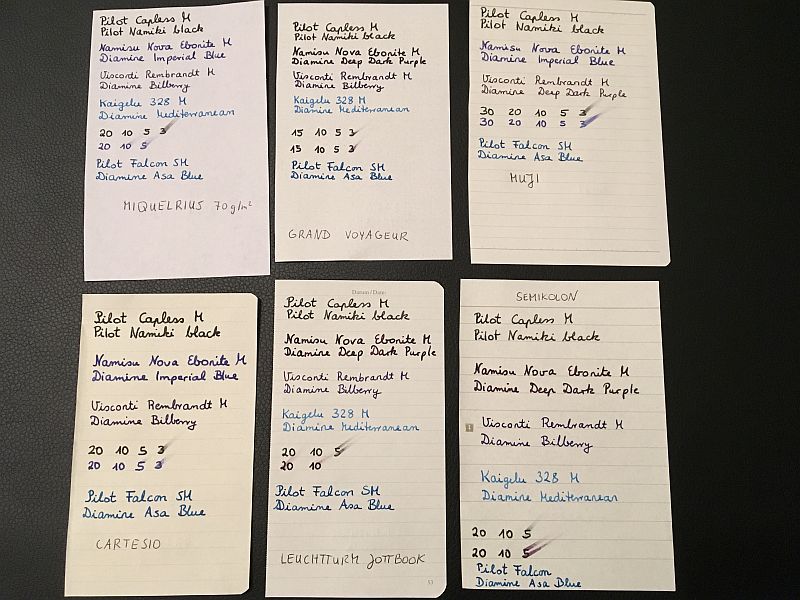 Pilot Capless M
Pilot Namiki black
Namisu Nova Ebonite M
Diamine Imperial Blue
Visconti Rembrandt M
Diamine Bilberry
Kaigelu 328 M
Diamine Mediterranean
20 10 5 3
20 10 5
Pilot Falcon SM
Diamine Asa Blue
MIQUELRIUS 70g/m²
Pilot Capless M
Pilot Namiki black
Namisu Nova Ebonite M
Diamine Deep Dark Purple
Visconti Rembrandt M
Diamine Bilberry
Kaigelu 328 M
Diamine Mediterranean
15 10 5 3
15 10 5 3
Pilot Falcon SM
Diamine Asa Blue
GRAND VOYAGEUR
Pilot Capless M
Pilot Namiki black
Namisu Nova Ebonite M
Diamine Imperial Blue
Visconti Rembrandt M
Diamine Deep Dark Purple
30 20 10 5 3
30 20 10 5 3
Pilot Falcon SM
Diamine Asa Blue
MUJI
Pilot Capless M
Pilot Namiki black
Namisu Nova Ebonite M
Diamine Imperial Blue
Visconti Rembrandt M
Diamine Bilberry
20 10 5 3
20 10 5 3
Pilot Falcon SM
Diamine Asa Blue
CARTESIO
Datum / Date:
Pilot Capless M
Pilot Namiki black
Namisu Nova Ebonite M
Diamine Deep Dark Purple
Visconti Rembrandt M
Diamine Bilberry
Kaigelu 328 M
Diamine Mediterranean
20 10 5
20 10
Pilot Falcon SM
Diamine Asa Blue
LEUCHTTURM JOTTBOOK
53
SEMIKOLON
Pilot Capless M
Pilot Namiki black
Namisu Nova Ebonite M
Diamine Deep Dark Purple
1
Visconti Rembrandt M
Diamine Bilberry
Kaigelu 328 M
Diamine Mediterranean
20 10 5
20 10 5
Pilot Falcon
Diamine Asa Blue